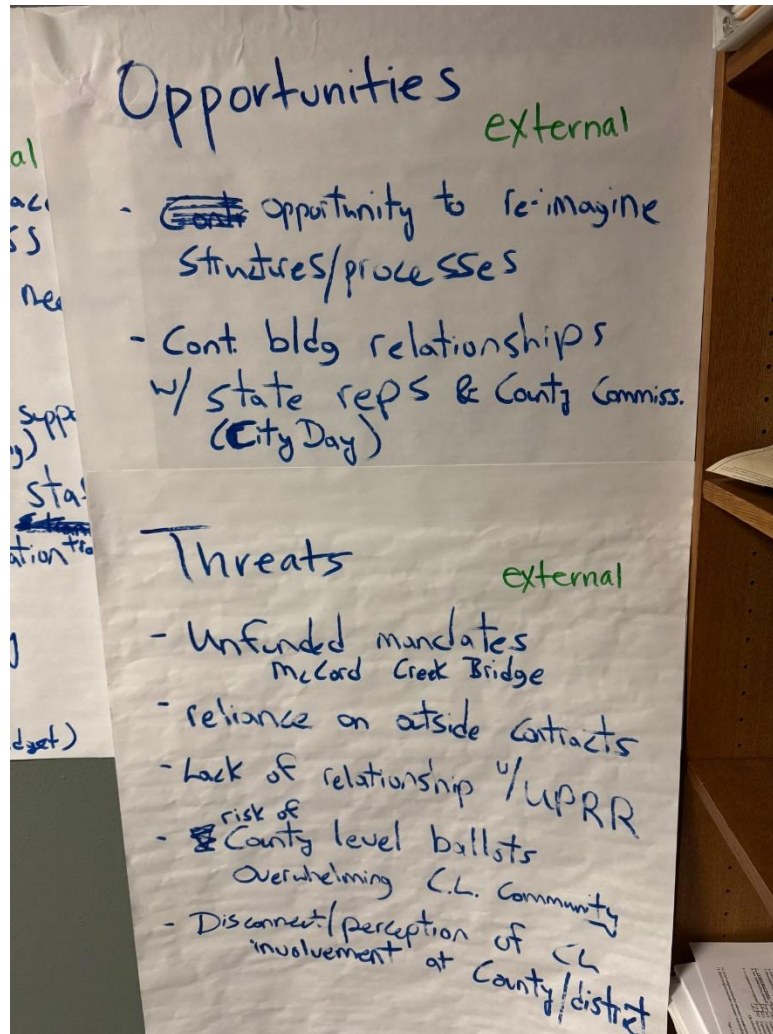 Opportunities
external
- opportunity to re-imagine
structures/processes
- Cont. bldg relationships
w/ state reps & County Commiss.
(City Day)
Threats
external
- Unfunded mandates
McCord Creek Bridge
- reliance on outside contracts
- Lack of relationship w/ UPRR
risk of
- County level ballots
Overwhelming C.L. Community
- Disconnect/perception of CL
involvement at County/district
al
ss
nee
supp
sta
ation
dget)